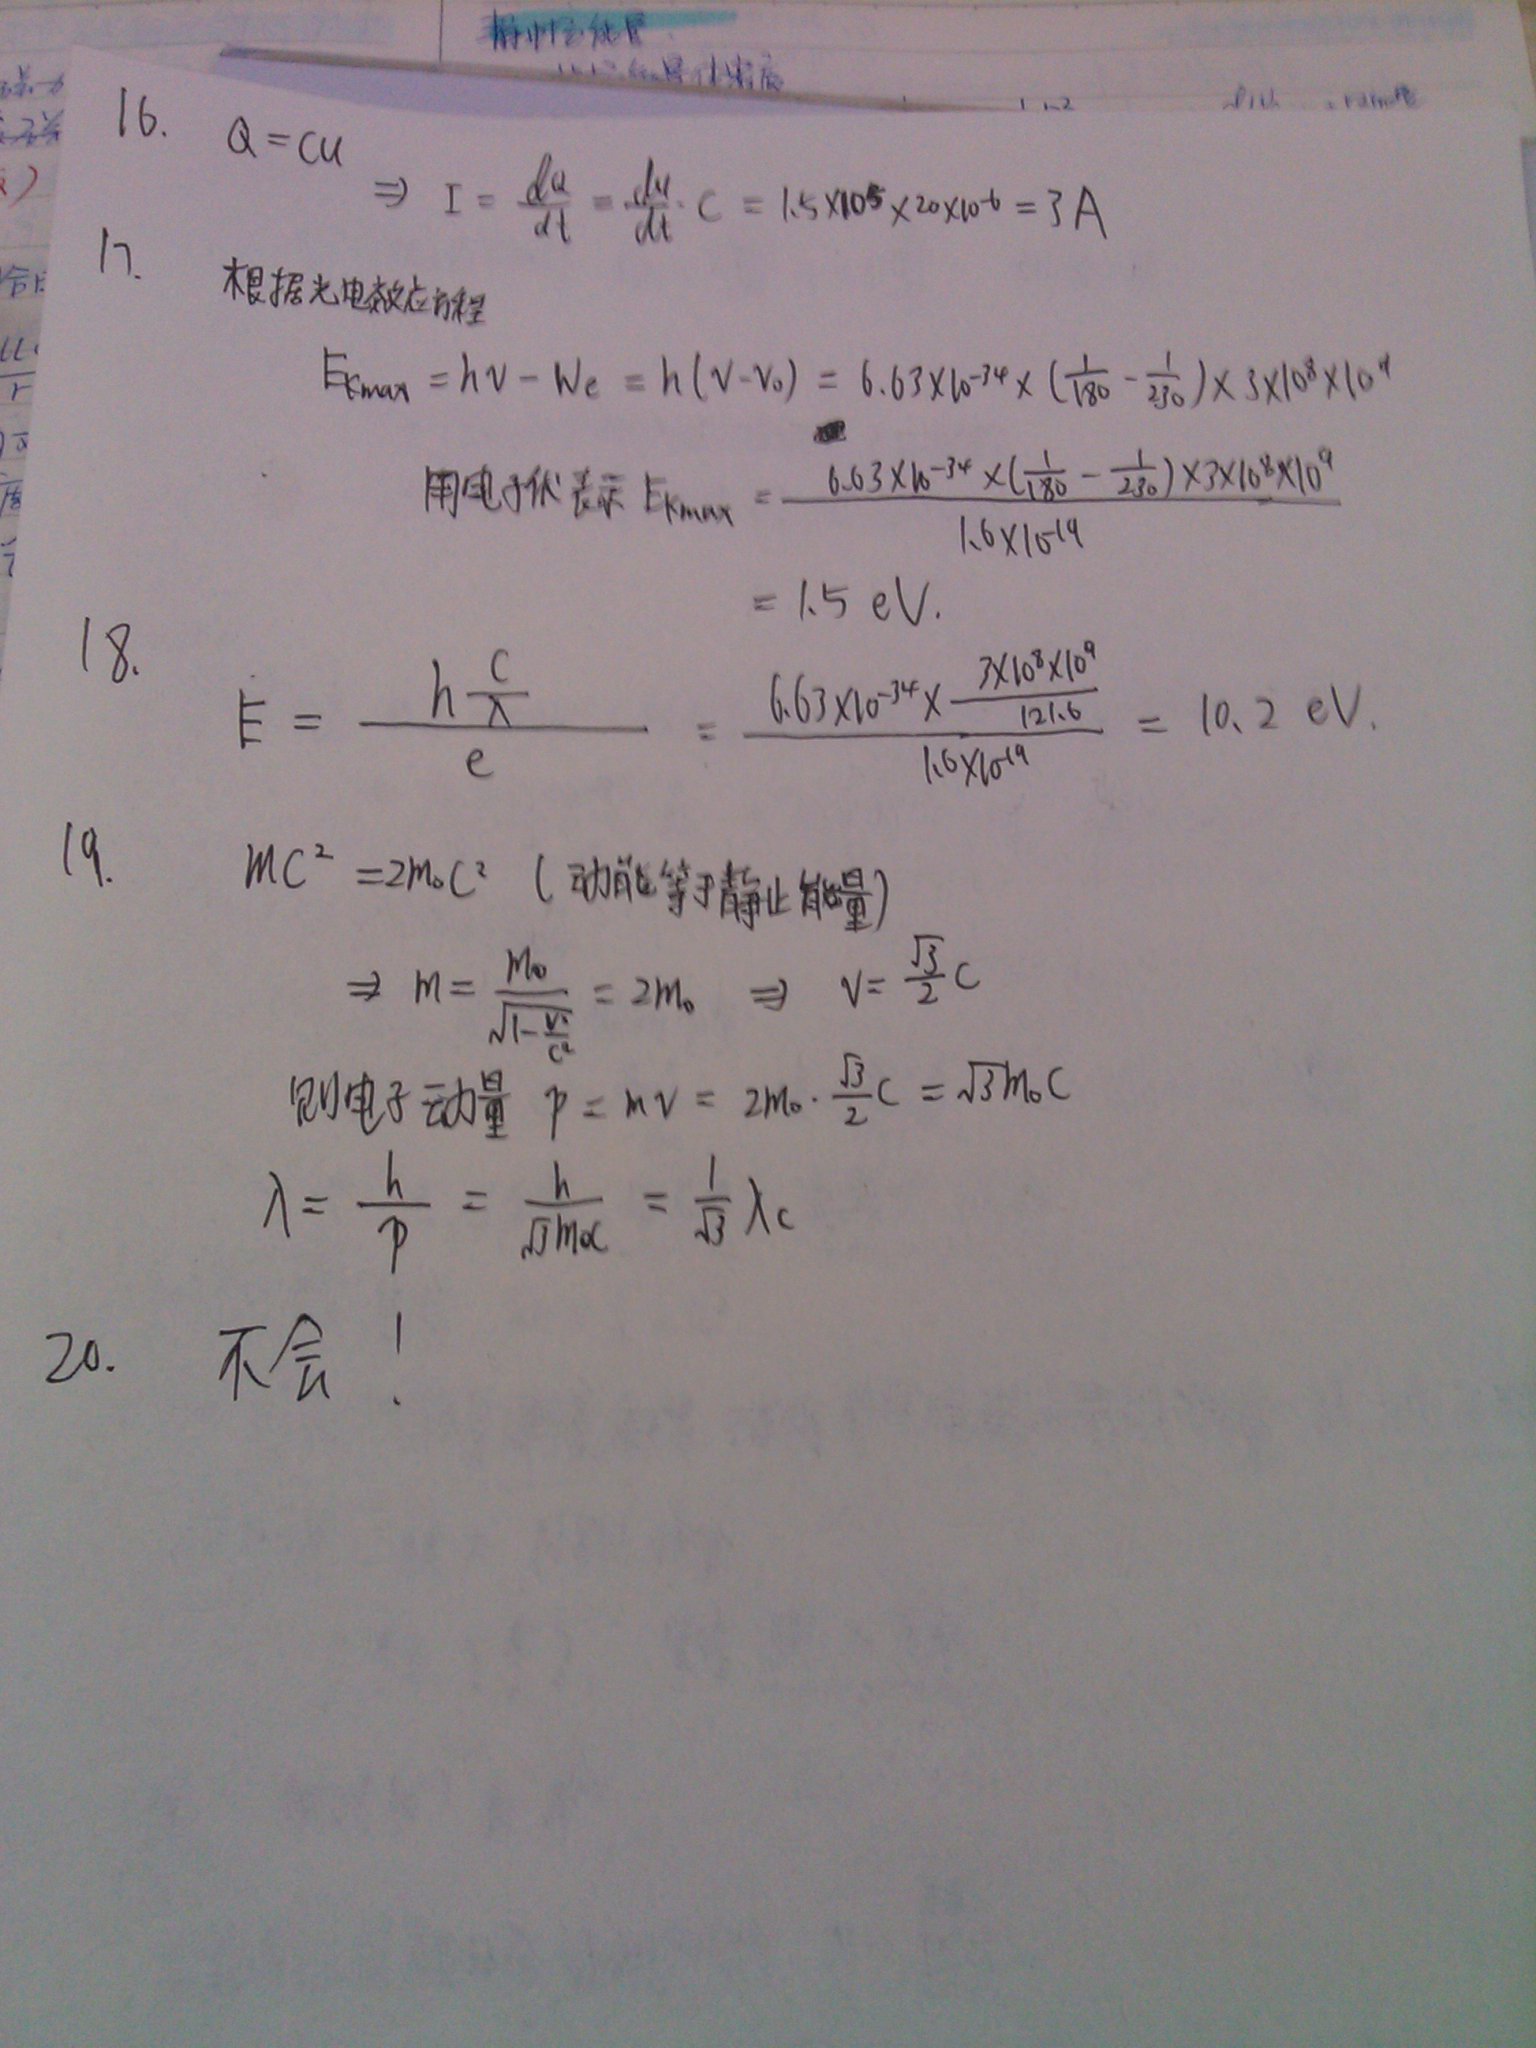 16. Q=CU
⇒ I = dQ/dt = du/dt · C = 1.5×10⁵×20×10⁻⁶ = 3A
17. 根据光电效应方程
Ekmax = hν - We = h(ν-ν₀) = 6.63×10⁻³⁴×(1/180 - 1/230)×3×10⁸×10⁹
用电子伏表示 Ekmax = 6.63×10⁻³⁴×(1/180 - 1/230)×3×10⁸×10⁹ / 1.6×10⁻¹⁹
= 1.5 eV.
18. E = h c/λ / e = 6.63×10⁻³⁴× 3×10⁸×10⁹/121.6 / 1.6×10⁻¹⁹ = 10.2 eV.
19. mc² = 2m₀c² (动能等于静止能量)
⇒ m = m₀/√(1-v²/c²) = 2m₀ ⇒ v = √3/2 c
则电子动量 p = mv = 2m₀·√3/2 c = √3m₀c
λ = h/p = h/√3m₀c = 1/√3 λc
20. 不会!